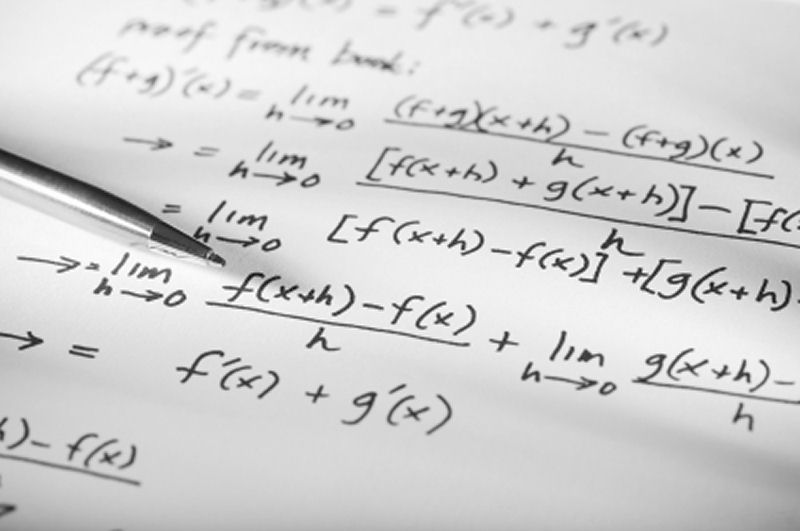 g)(x) = f'(x) + g'(x)
proof from book:
(f+g)'(x) = lim h→0 (f+g)(x+h) − (f+g)(x) / h
→ = lim h→0 [f(x+h) + g(x+h)] − [f( / h
= lim h→0 [f(x+h) − f(x)] + [g(x+h)
→ = lim h→0 f(x+h) − f(x) / h + lim h→0 g(x+h) − / h
→ = f'(x) + g'(x)
h) − f(x)